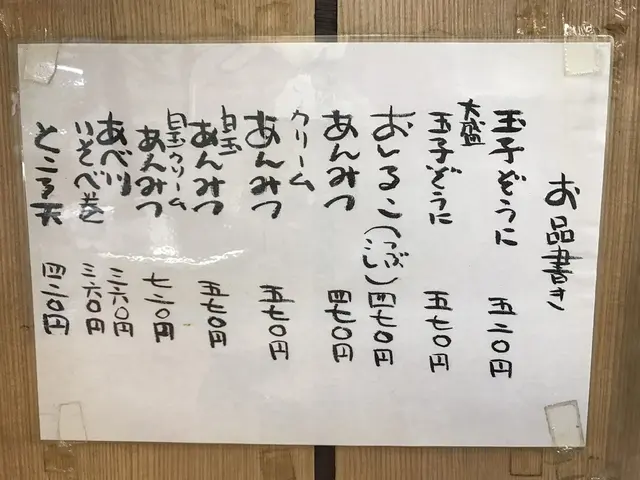 お品書き
玉子ぞうに 五二〇円
大盛玉子ぞうに 五七〇円
おしるこ(つぶし こし) 四七〇円
あんみつ 四七〇円
クリームあんみつ 五七〇円
白玉あんみつ 五七〇円
白玉クリームあんみつ 七二〇円
あべ川 三六〇円
いそべ巻 三六〇円
ところ天 四二〇円